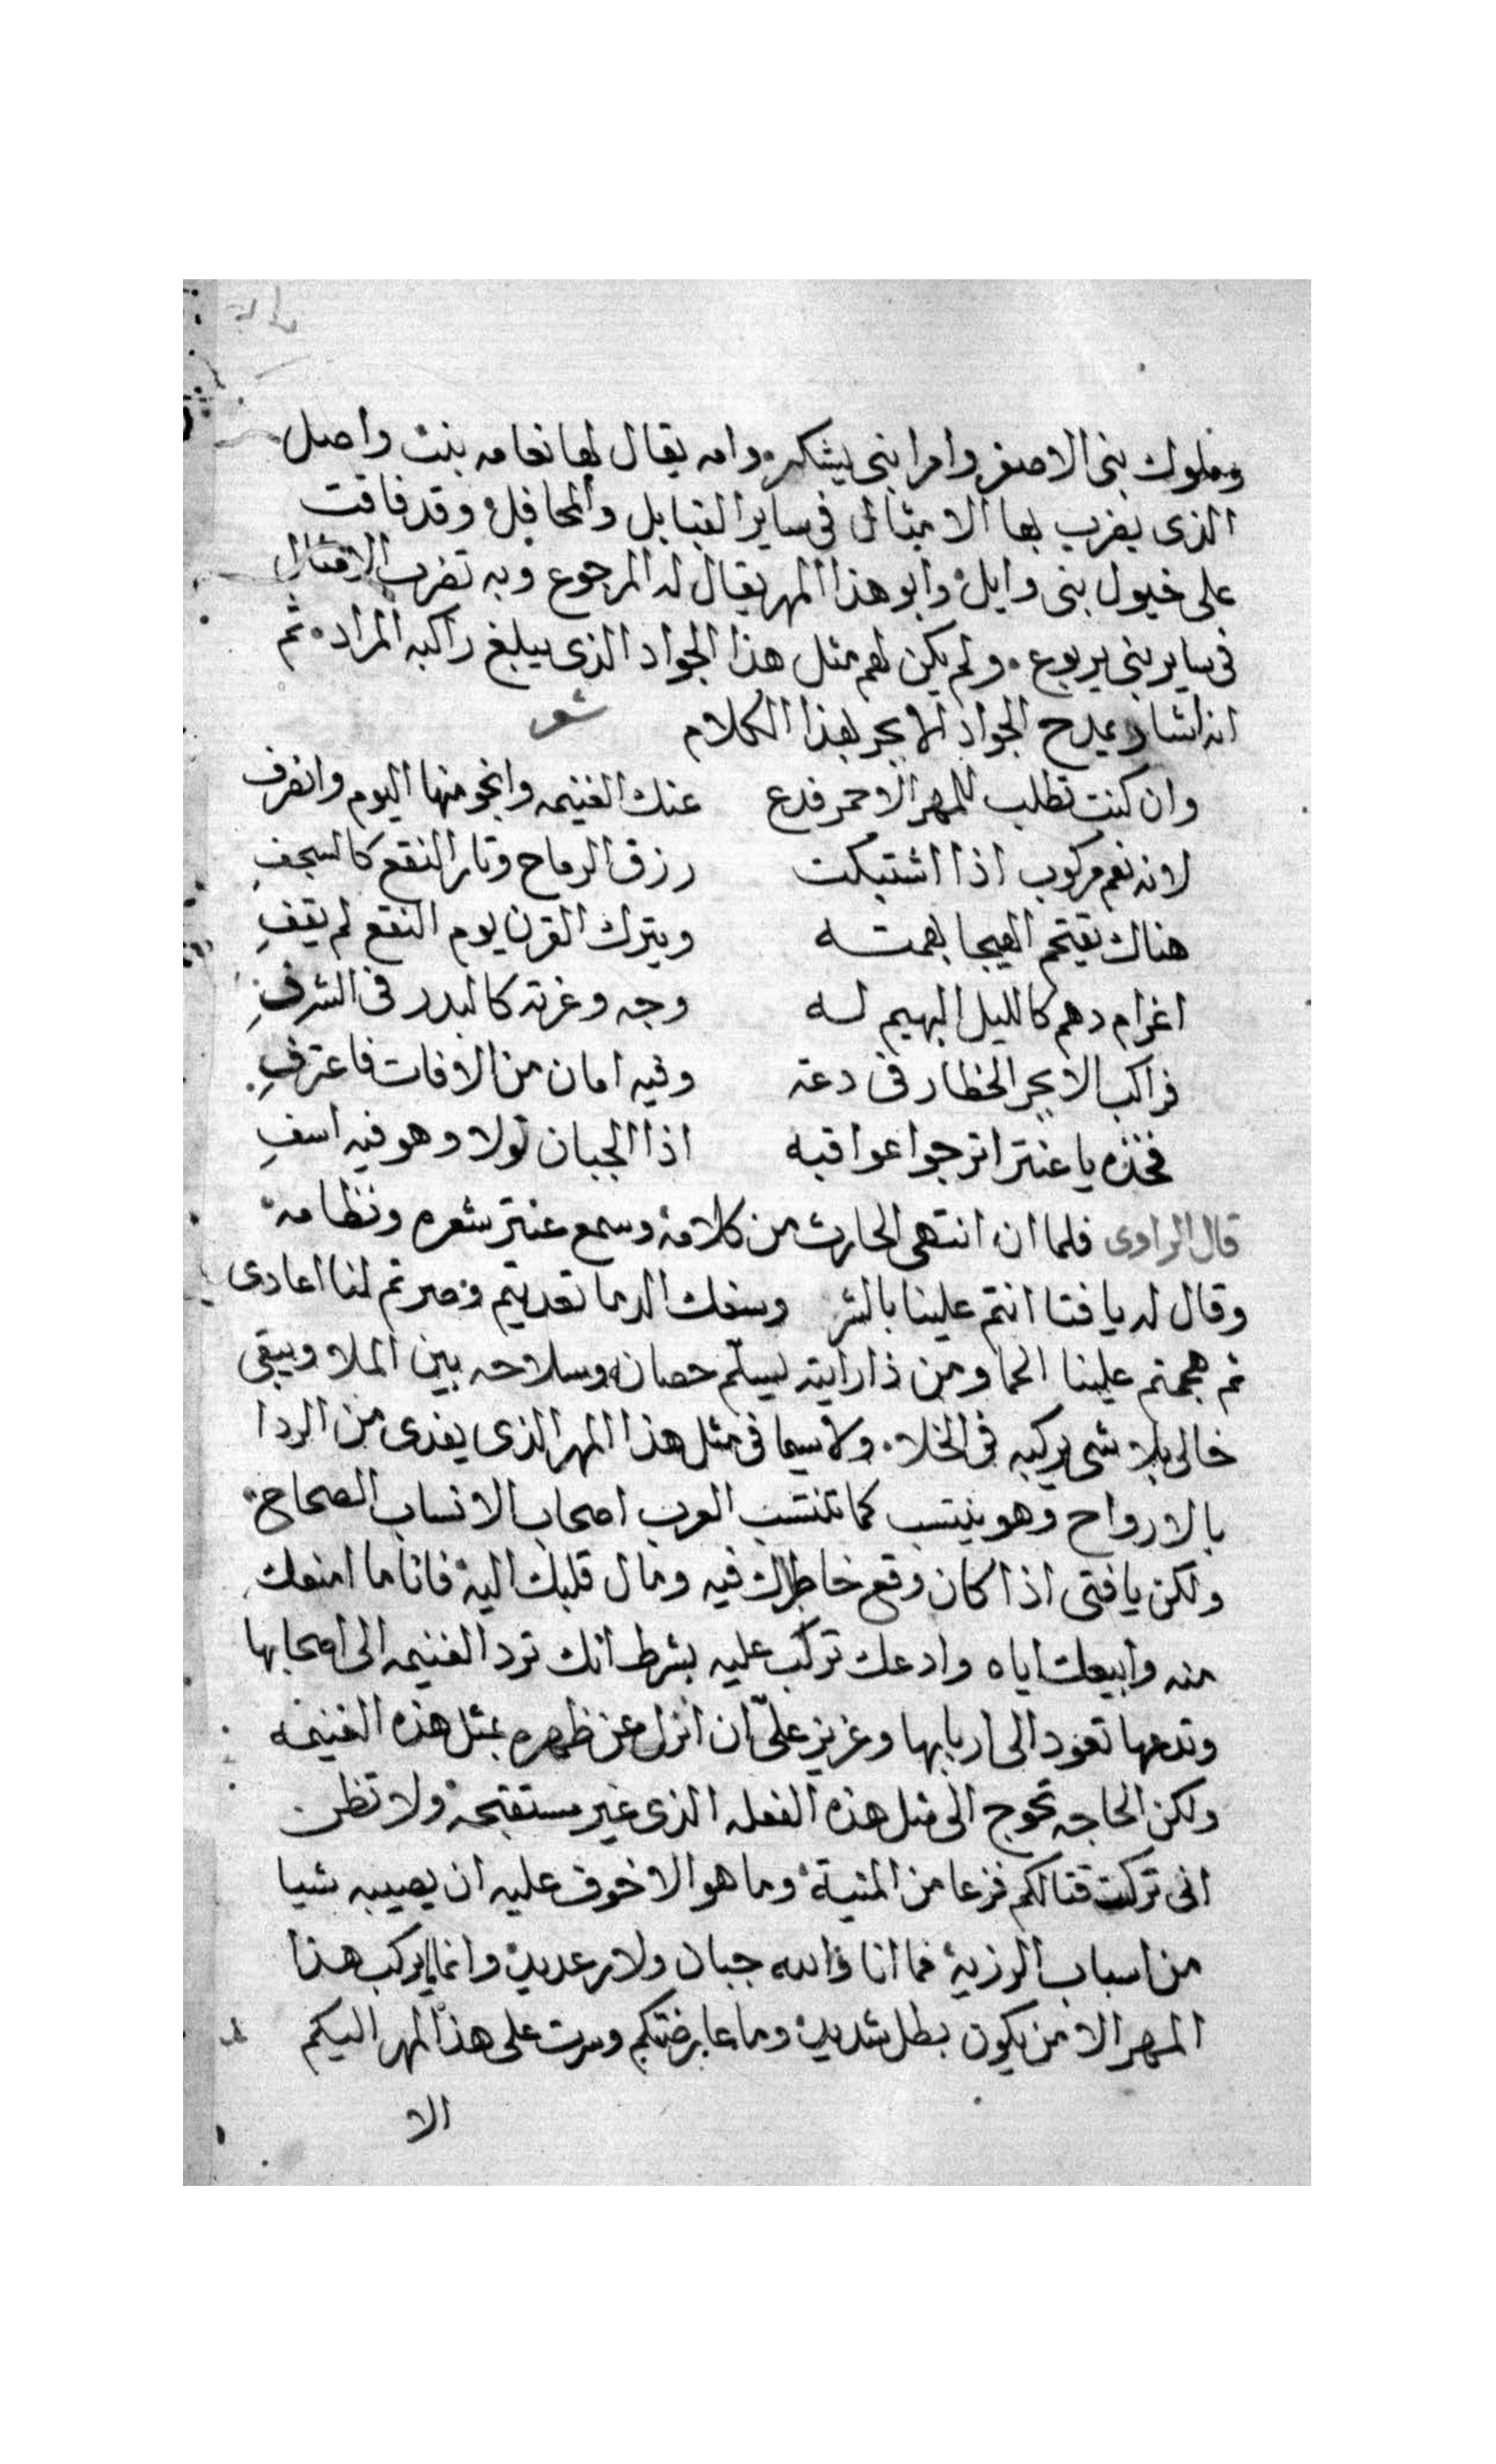 وملوك بنى الاصفر وامرا بنى يشكر وامه يقال لها نعامه بنت واصل
الذى يضرب بها الامثال فى ساير القبايل والمحافل وقد فاقت
على خيول بنى وايل وابو هذا المهر يقال له المرجوع وبه تضرب الامثال
فى ساير بنى يربوع ولم يكن لهم مثل هذا الجواد الذى يبلغ راكبه المراد ثم
انه اشار يمدح الجواد الابجر بهذا الكلام شعر
وان كنت تطلب للمهر الاحمر فدع عنك الغنيمه وانجو منها اليوم وانصرف
لانه نعم مركوب اذا اشتبكت زرق الرماح وثار النقع كالسجفِ
هناك يقتحم الهيجا بهمته ويترك القرن يوم النقع لم يقفِ
اغرام دهم كالليل البهيم له وجه وغرته كالبدر فى الشرفِ
فراكب الابجر الخطار فى دعه وفيه امان من الافات فاعترفِ
فخذه يا عنتر اترجوا عواقبه اذا الجبان تولا وهو فيه اسفِ
قال الراوى فلما ان انتهى الحارث من كلامه وسمع عنتر شعره ونظامه
وقال له يا فتا انتم علينا بالشر وسفك الدما تعديتم وصرتم لنا اعادى
ثم هجمتم علينا الحما ومن ذا رايته يسلّم حصانه وسلاحه بين الملا ويبقى
خالى بلا شى يركبه فى الخلاء ولاسيما فى مثل هذا المهر الذى يفدى من الردا
بالارواح وهو ينتسب كما تنتسب العرب اصحاب الانساب الصحاح
ولكن يا فتى اذا كان وقع خاطرك فيه ومال قلبك اليه فانا ما امنعك
منه وابيعك اياه وادعك تركب عليه بشرط انك ترد الغنيمه الى اصحابها
وتدعها تعود الى اربابها وعزيز علىّ ان انزل عن ظهره بمثل هذه الغنيمه
ولكن الحاجه تحوج الى مثل هذه الفعله الذى غير مستقبحه ولا تظن
انى تركت قتالكم فزعا من المنية وما هو الا خوف عليه ان يصيبه شيا
من اسباب الرزية فما انا والله جبان ولا رعديد وانما يركب هذا
المهر الا من يكون بطل شديد وما عارضتكم وسرت على هذا المهر اليكم
الا